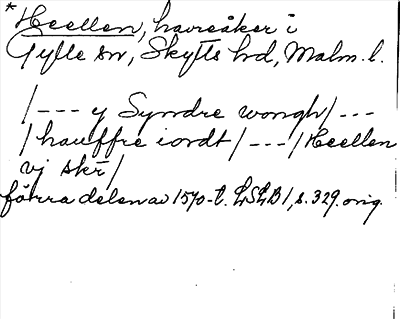 *Heellen, havreåker i
Gylle sn, Skytts hd, Malm. l.
/--- y Syndre wongh/ ---
/hauffre iordt/ ---/Heellen
vj skr̄/
förra delen av 1570-t. LSLB 1, s. 329. orig.